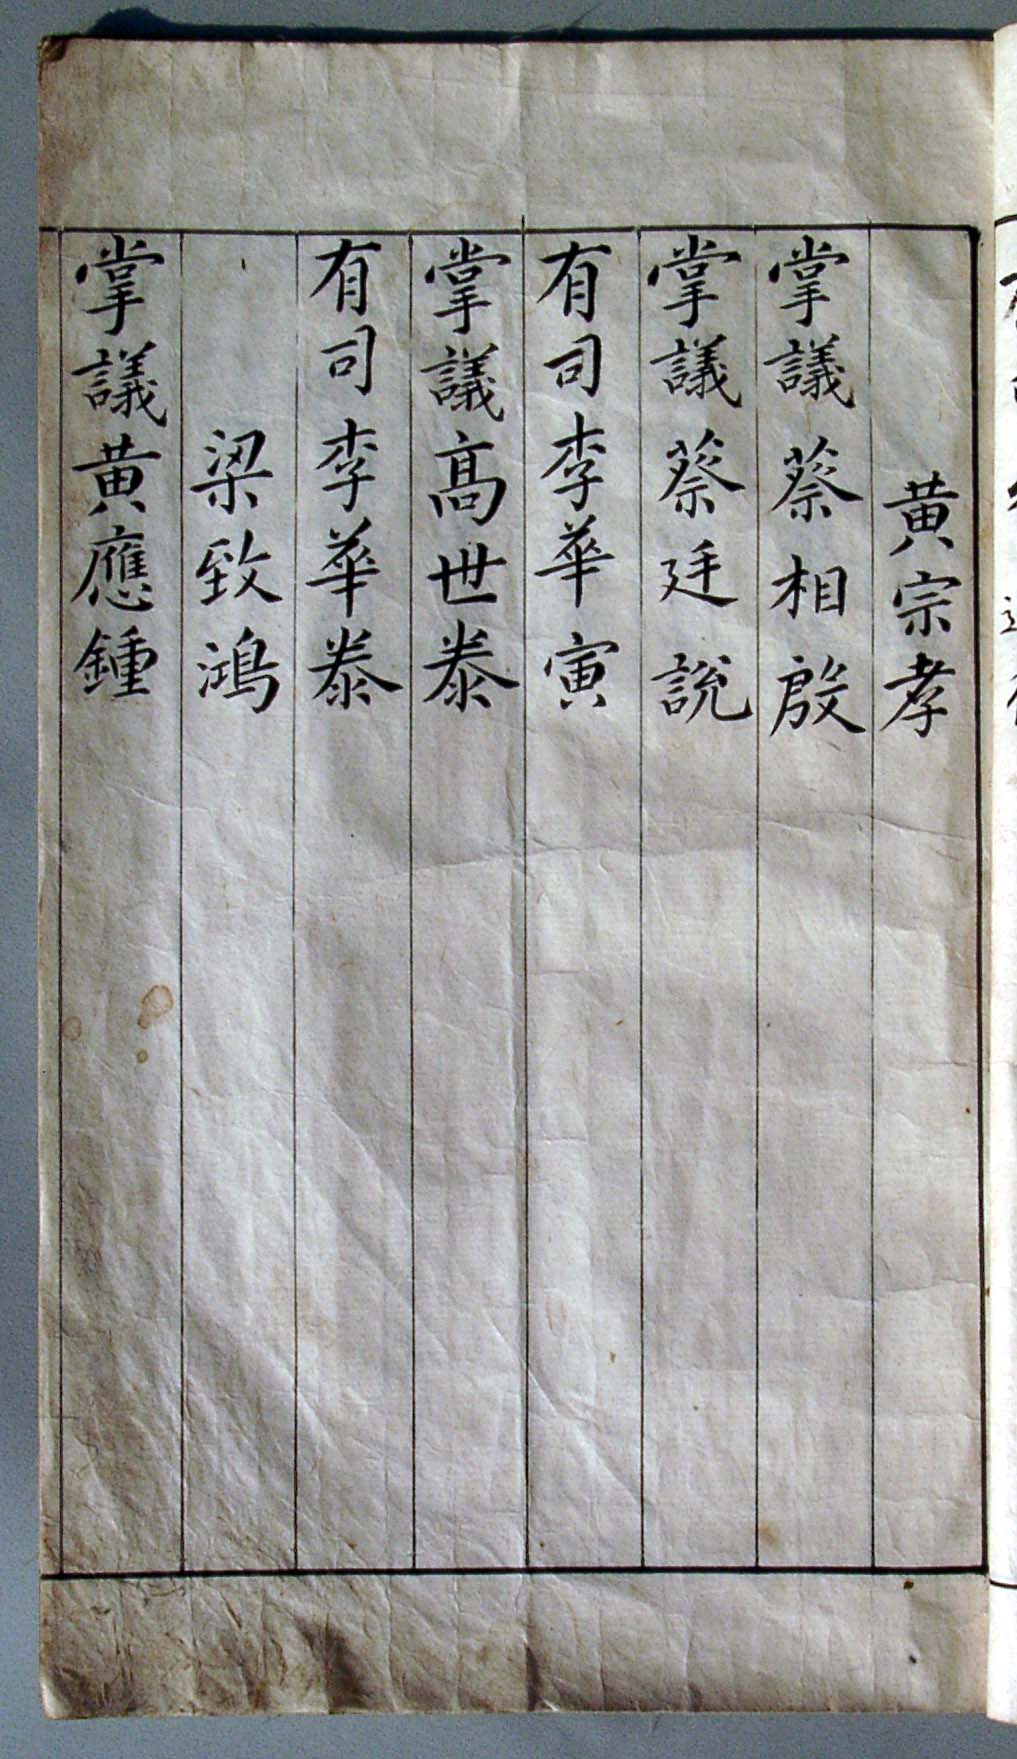 黄宗孝
掌議蔡相殷
掌議蔡廷說
有司李華寅
掌議高世泰
有司李華泰
梁致鴻
掌議黄應鍾